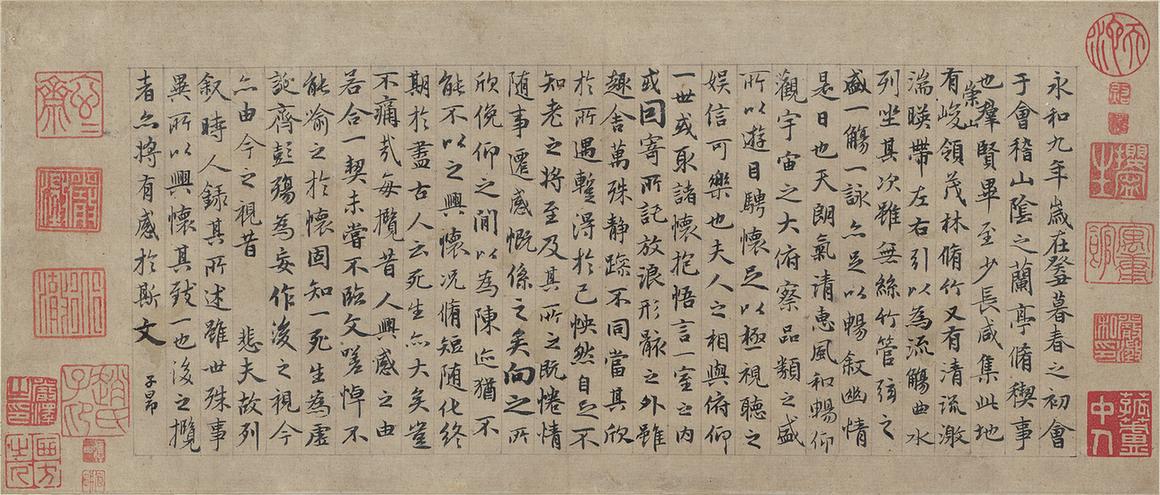 永和九年歲在癸丑暮春之初會
于會稽山陰之蘭亭脩禊事
也群賢畢至少長咸集此地
有崇山峻領茂林脩竹又有清流激
湍暎帶左右引以為流觴曲水
列坐其次雖無絲竹管弦之
盛一觴一詠亦足以暢敘幽情
是日也天朗氣清惠風和暢仰
觀宇宙之大俯察品類之盛
所以遊目騁懷足以極視聽之
娛信可樂也夫人之相與俯仰
一世或取諸懷抱悟言一室之內
或因寄所託放浪形骸之外雖
趣舍萬殊靜躁不同當其欣
於所遇暫得於己怏然自足不
知老之將至及其所之既惓情
隨事遷感慨係之矣向之所
欣俛仰之閒以為陳迹猶不
能不以之興懷況脩短隨化終
期於盡古人云死生亦大矣豈
不痛哉每攬昔人興感之由
若合一契未嘗不臨文嗟悼不
能喻之於懷固知一死生為虛
誕齊彭殤為妄作後之視今
亦由今之視昔 悲夫故列
敘時人錄其所述雖世殊事
異所以興懷其致一也後之攬
者亦將有感於斯文
子昂